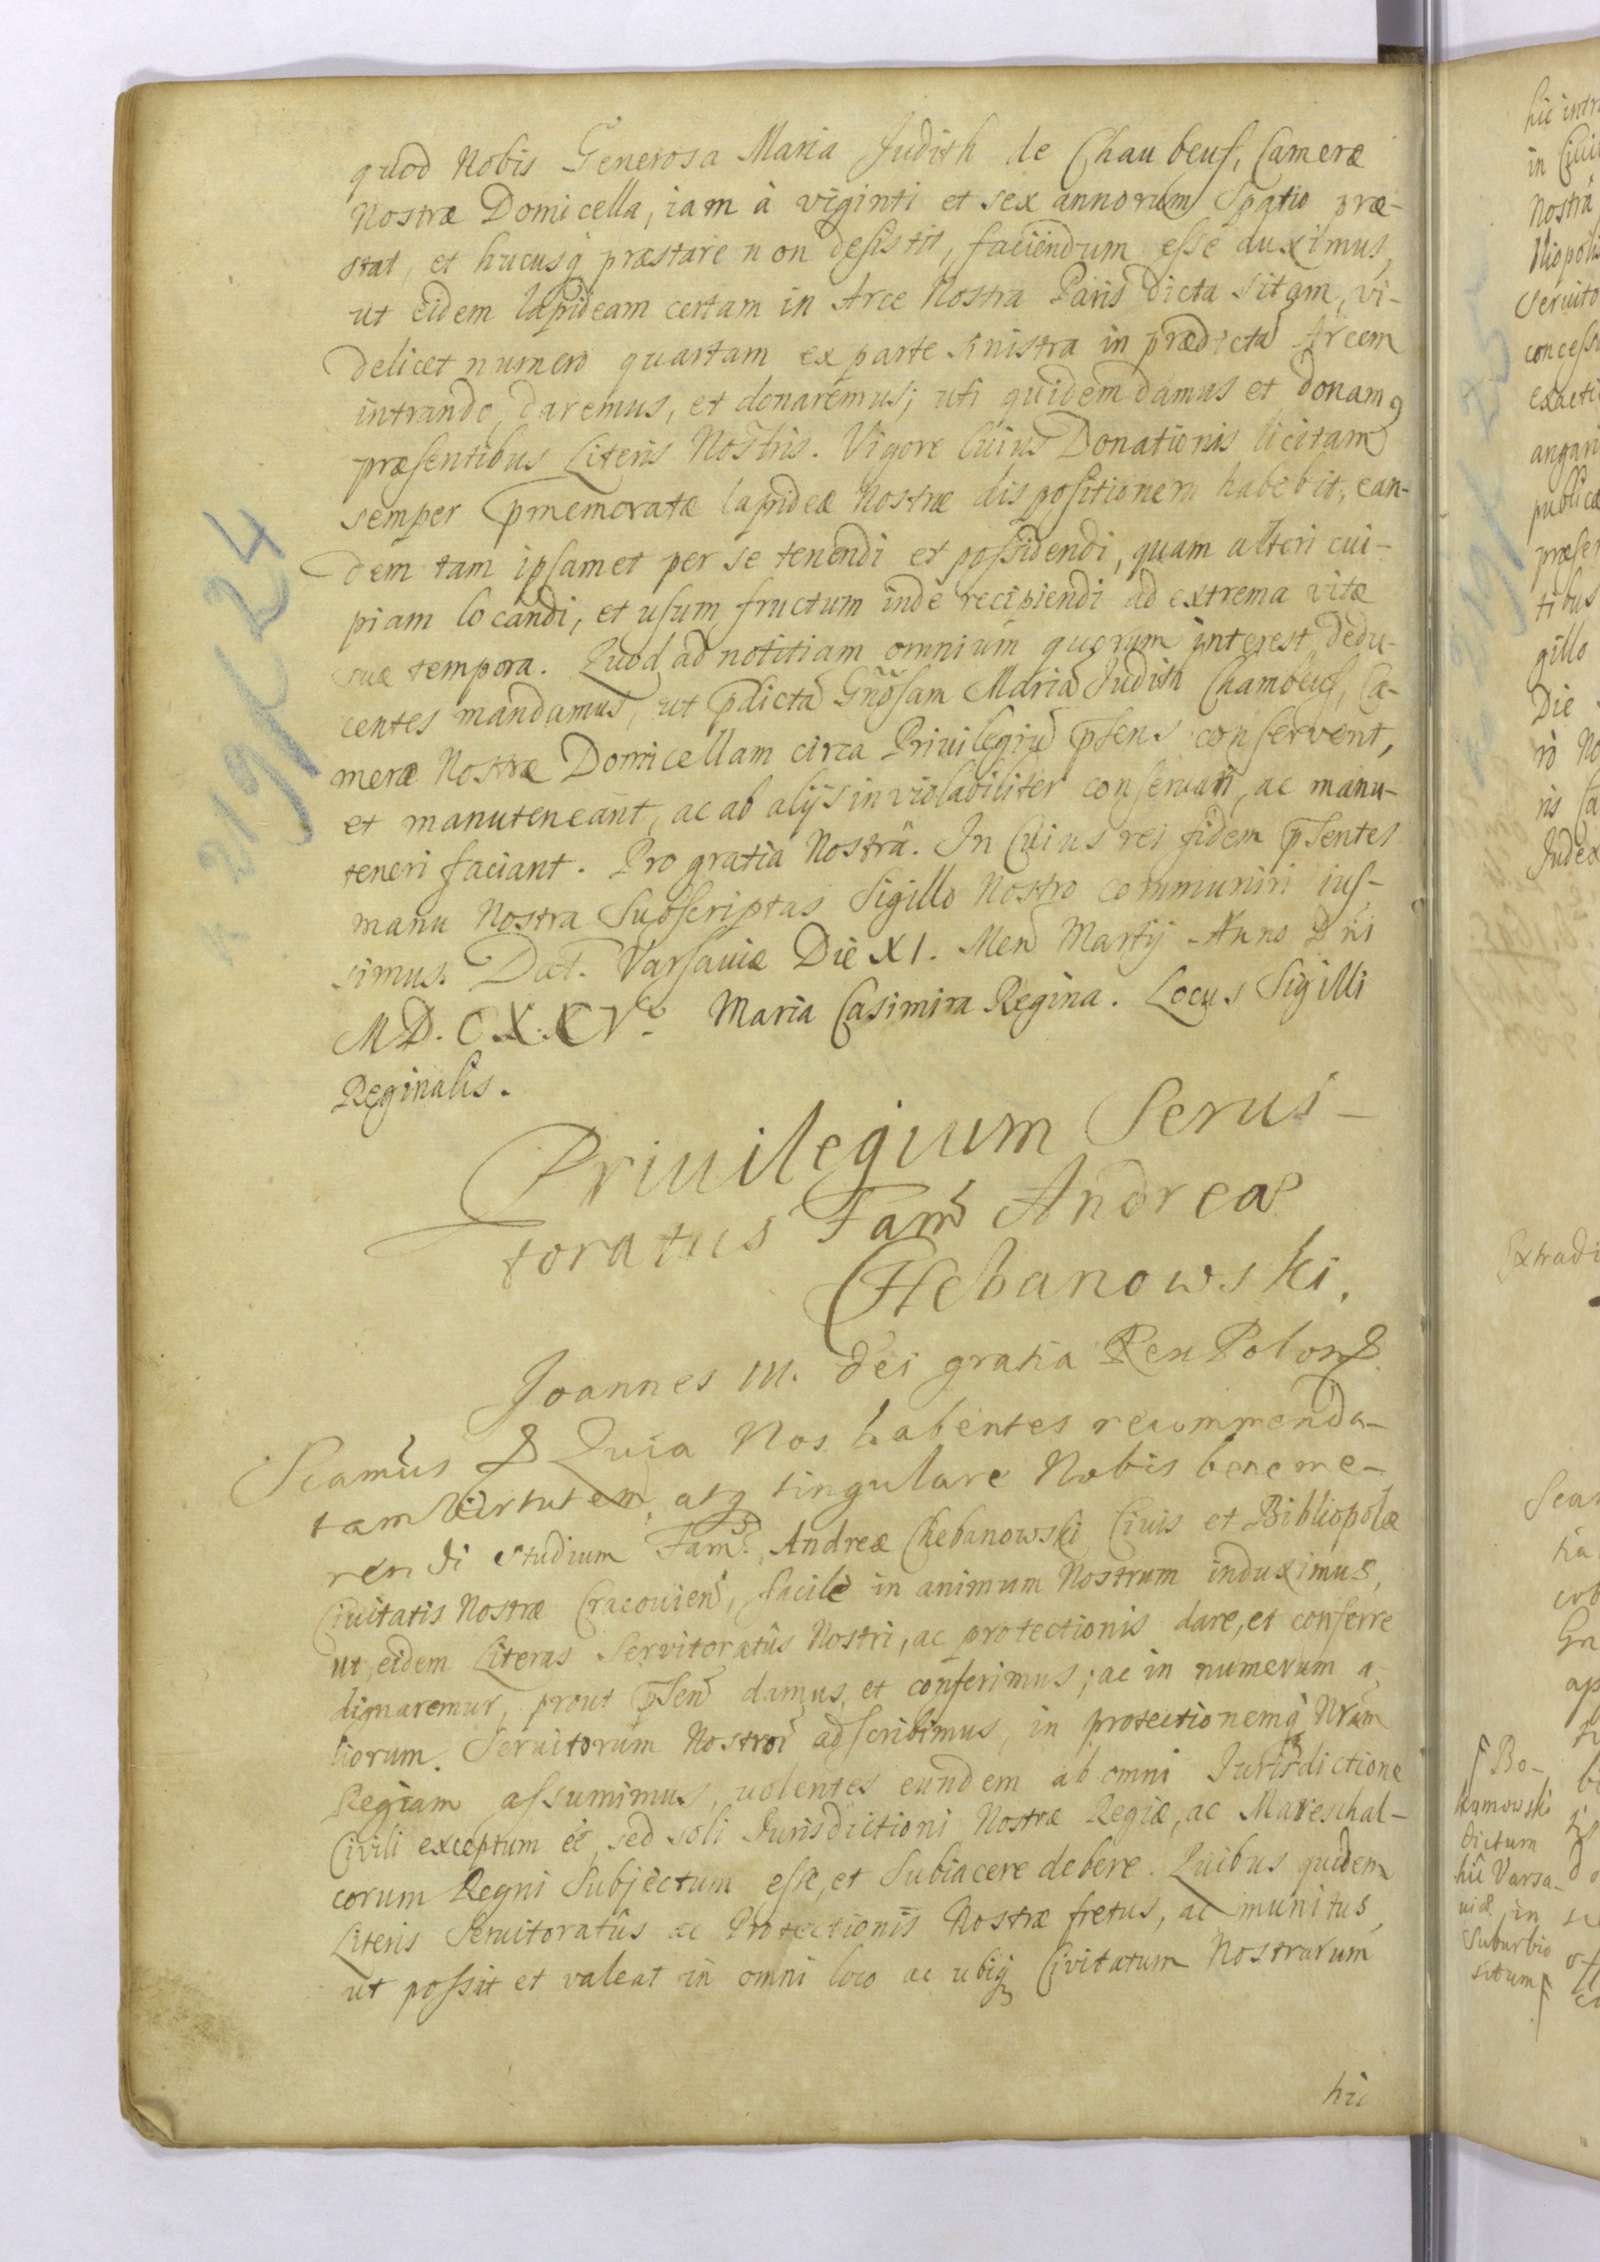 quod Nobis Generosa Maria Judith de Chaubeuf, Cameræ
Nostræ Domicella, iam à viginti et sex annorum Spatio præ-
stat, et hucusq præstare non desistit, faciendum esse duximus,
ut eidem lapideam certam in Arce Nostra Paris dicta sitam, vi-
delicet numero quartam ex parte sinistra in prædictã Arcem
intrando, daremus, et donaremus; uti quidem damus et donam9
præsentibus Literis Nostris. Vigore cuius Donationis licitam
semper pmemoratæ lapideæ Nostræ dispositionem habebit, ean-
dem tam ipsamet per se tenendi et possidendi, quam alteri cui-
piam locandi, et usum fructum inde recipiendi ad extrema vitæ
suæ tempora. Quod ad notitiam omnium quorum interest dedu-
centes mandamus, ut pdictã Gñosam Mariã Judith Chambeuf, Ca-
meræ Nostræ Domicellam circa Privilegiũ psens conservent,
et manuteneant, ac ab alijs inviolabiliter conservari, ac manu-
teneri faciant. Pro gratia Nostrâ. In Cuius rei fidem psentes
manu Nostra Subscriptas Sigillo Nostro communiri ius-
simus. Dat. Varsaviæ Die XI. Men Martij Anno Dñi
M.D.C.X.C.V. Maria Casimira Regina. Locus Sigilli
Reginalis.
Privilegium Servi-
toratus Fam Andreæ
CHebanowski.
Joannes III. Dei gratia Rex Polon &
Sciamus & Quia Nos habentes recommenda-
tam Virtutem, atq singulare Nobis beneme-
rendi studium Fam. Andreæ Chebanowski Civis et Bibliopolæ
Civitatis Nostræ Cracovien, facile in animum Nostrum induximus,
ut eidem Literas Servitoratûs Nostri, ac protectionis dare, et conferre
dignaremur, prout psen damus, et conferimus; ac in numerum a-
liorum Servitorum Nostror adscribimus, in protectionemq Nram
Regiam assumimus, volentes eundem ab omni Jurisdictione
Civili exceptum ee, sed soli Jurisdictioni Nostræ Regiæ, ac Mareschal-
corum Regni Subjectum esse, et Subiacere debere. Quibus quidem
Literis Servitoratûs ac Protectionis Nostræ fretus, ac munitus,
ut possit et valeat in omni loco ac ubiq Civitatum Nostrarum
hic
hic intr
in Civi
Nostra
liopolis
Servito
concess
exacti
angari
publicæ
præsen
tibus
gillo
Die
ris Ca
Judex
Extradi
Bo-
kumowski
dictum
hic Varsa-
viæ in
Suburbio
situm